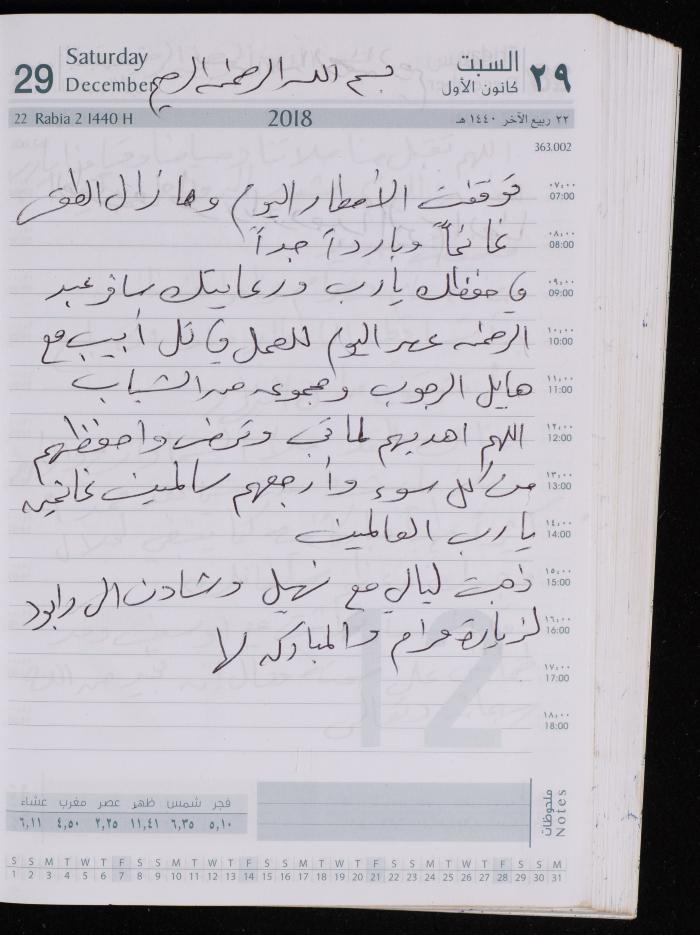 29 Saturday December بسم الله الرحمن الرحيم السبت كانون الأول ٢٩
22 Rabia 2 1440 H 2018 ٢٢ ربيع الآخر ١٤٤٠ هـ
363.002
توقفت الأمطار اليوم وما زال الطقس ٠٧:٠٠ 07:00
غائماً وبارداً جداً ٠٨:٠٠ 08:00
في حفظك يا رب ورعايتك سافر عبد ٠٩:٠٠ 09:00
الرحمن عصر اليوم للعمل في تل أبيب مع ١٠:٠٠ 10:00
هايل الرجوب ومجموعه من الشباب ١١:٠٠ 11:00
اللهم اهديهم لما تحب وترضى واحفظهم ١٢:٠٠ 12:00
من كل سوء وأرجعهم سالمين غانمين ١٣:٠٠ 13:00
يا رب العالمين ١٤:٠٠ 14:00
ذهبت ليالي مع نهيل وشادن الى رابود ١٥:٠٠ 15:00
لزيارة مرام والمباركه لها ١٦:٠٠ 16:00
١٧:٠٠ 17:00
١٨:٠٠ 18:00
12
ملحوظات Notes
فجر شمس ظهر عصر مغرب عشاء
٥,١٠ ٦,٣٥ ١١,٤١ ٢,٢٥ ٤,٥٠ ٦,١١
S S M T W T F S S M T W T F S S M T W T F S S M T W T F S S M
1 2 3 4 5 6 7 8 9 10 11 12 13 14 15 16 17 18 19 20 21 22 23 24 25 26 27 28 29 30 31